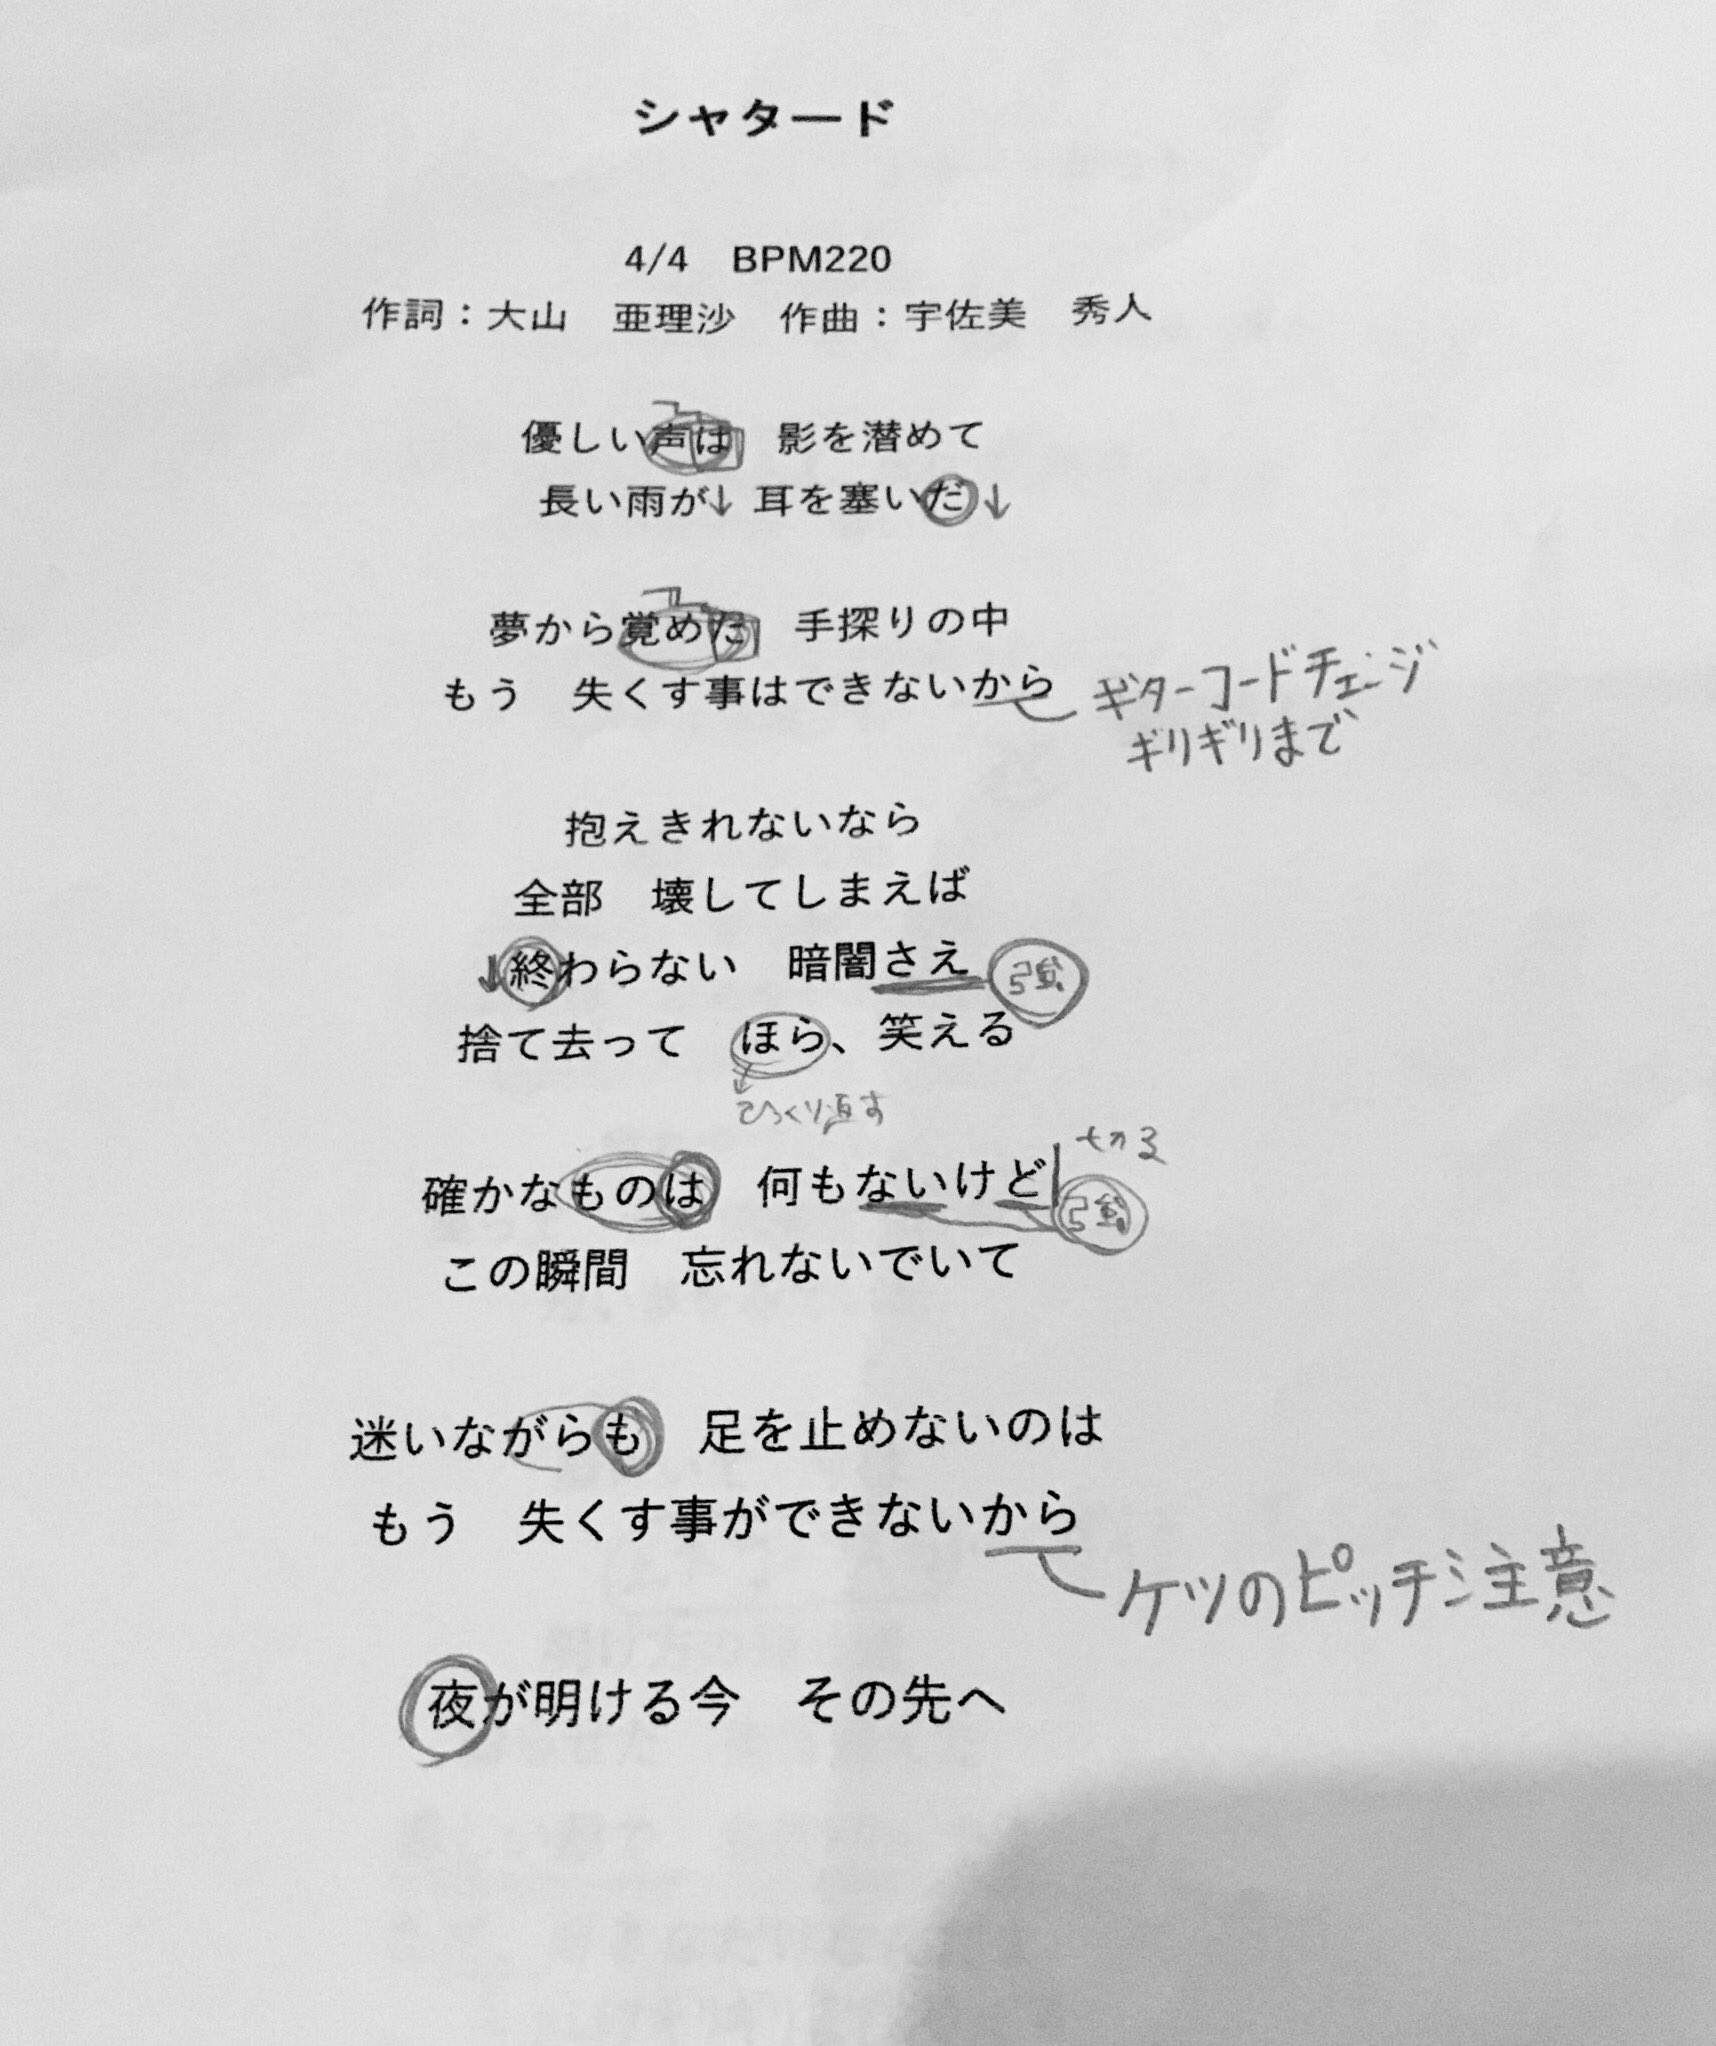 シャタード
4/4　BPM220
作詞：大山　亜理沙　作曲：宇佐美　秀人
優しい声は　影を潜めて
長い雨が↓ 耳を塞いだ ↓
夢から覚めた　手探りの中
もう　失くす事はできないから
ギターコードチェンジ
ギリギリまで
抱えきれないなら
全部　壊してしまえば
↓終わらない　暗闇さえ 強
捨て去って　ほら、笑える
ひっくり返す
切る
確かなものは　何もないけど 強
この瞬間　忘れないでいて
迷いながらも　足を止めないのは
もう　失くす事ができないから
ケツのピッチ注意
夜が明ける今　その先へ